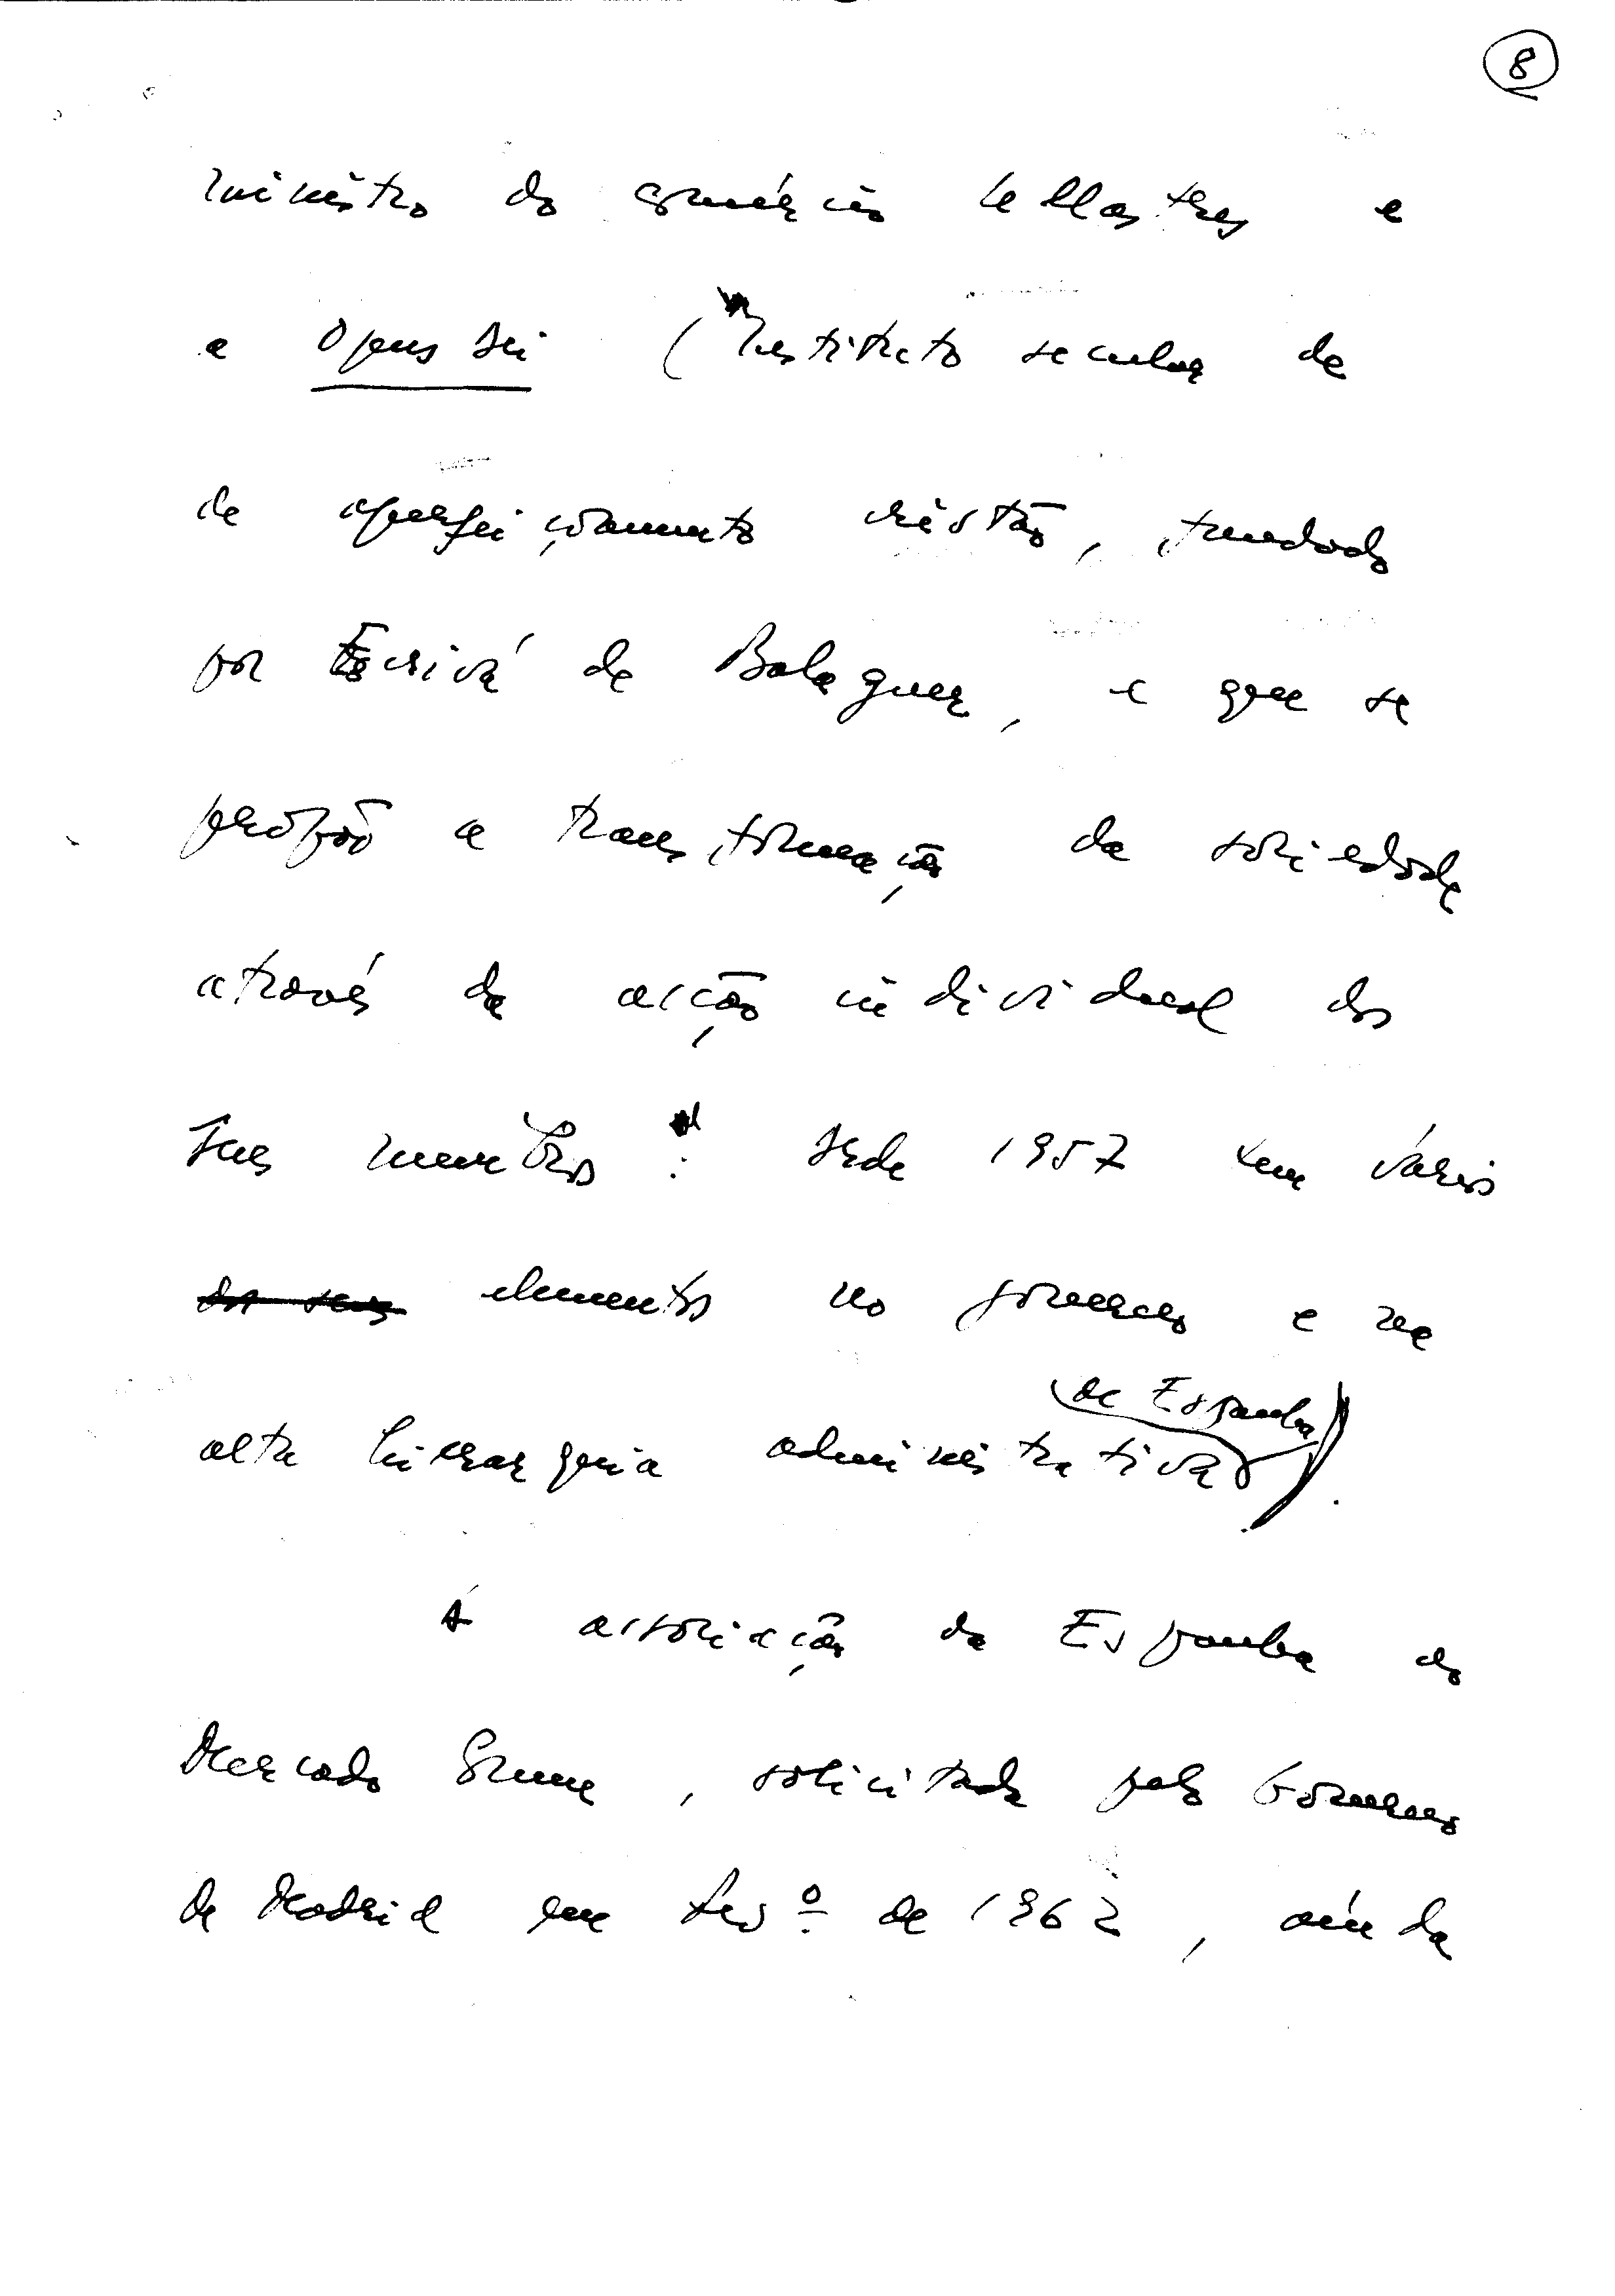 8
ministro do comércio Ullastres e
a Opus Dei (Instituto secular de
de aperfeiçoamento cristão, fundado
por Escrivá de Balaguer, e que se
propõe a transformação da sociedade
através da acção individual dos
seus membros: desde 1957 tem vários
dos seus elementos no governo e na
alta hierarquia administrativa de Espanha).
A associação da Espanha ao
Mercado Comum, solicitada pelo Governo
de Madrid em Fevº de 1962, ainda